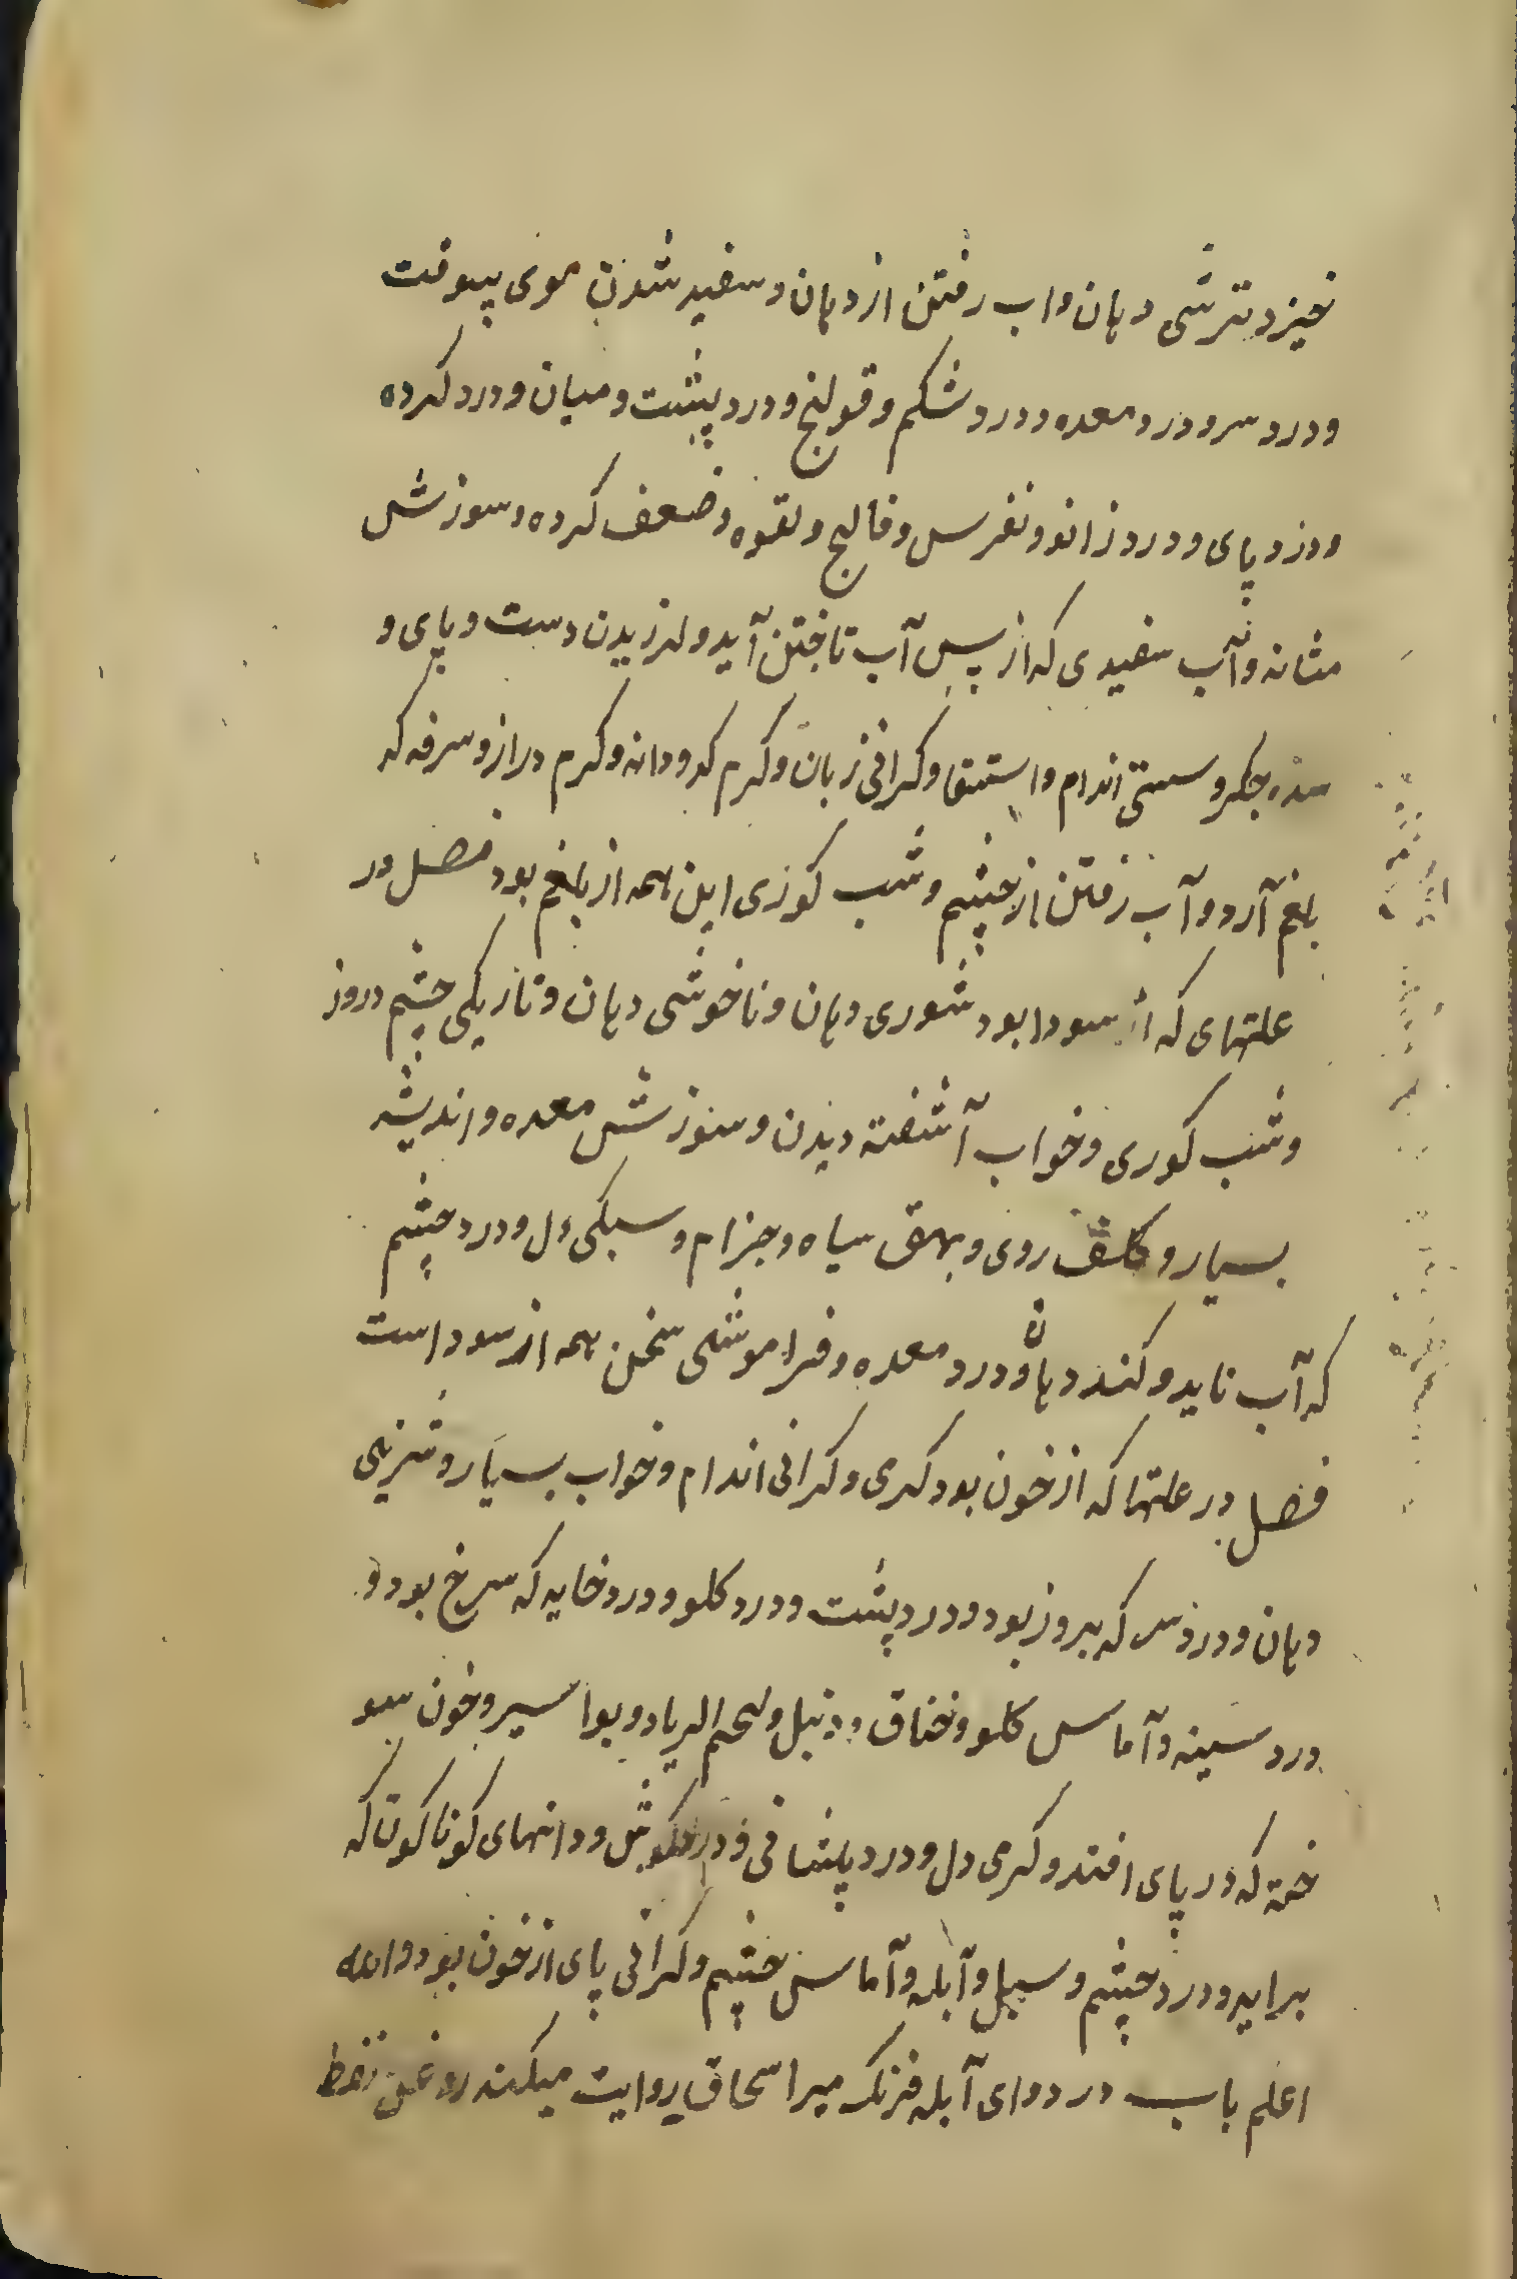 خیزد ترشی دهان واب رفتن از دهان و سفید شدن موی بیوقت
ودرد سر و درد معده و درد شکم و قولنج و درد پشت و میان و درد کرده
ودرد پای و درد زانو و نقرس و فالج و لقوه و ضعف کرده و سوزش
مثانه و آب سفیدی که از پس آب تاختن آید و لرزیدن دست و پای و
سده جکر و سستی اندام و استسقا و کرانی زبان و کرم کدودانه و کرم دراز و سرفه که
بلغم آرد و آب رفتن از چشم و شب کوری این همه از بلغم بود فصل در
علتهای که از سودا بود شوری دهان و ناخوشی دهان و تاریکی چشم در روز
و شب کوری و خواب آشفته دیدن و سوزش معده و اندیشه
بسیار و کلف روی و بهق سیاه و جزام و سبکی دل و درد چشم
که آب ناید و کند دهان و درد معده و فراموشی سخن همه از سود است
فصل در علتها که از خون بود کری و کرانی اندام و خواب بسیار و شیرینی
دهان و درد سر که بروز بود و درد پشت و درد کلو و درد خایه که سرخ بود و
درد سینه و آماس کلو و خناق و دنبل و بواسیر و خون
که در پای افتد و کرمی دل و درد پیشانی و درد کوش و دانهای کوناکون که
براید و درد چشم و سبل و آبله و آماس چشم و کرانی پای از خون بود والله
اعلم باب در دوای آبله فرنک میر اسحاق روایت میکند روغن نفط